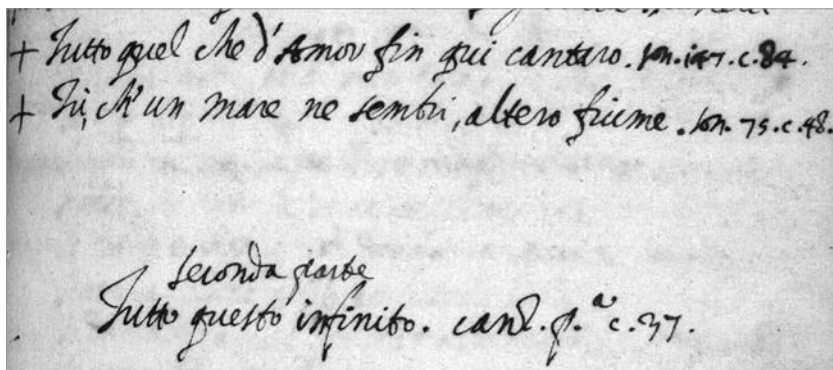 + Tutto quel che d'Amor fin qui cantaro. son. 147. c. 84.
+ Tù, ch'un mare ne sembri, altero fiume. son. 75. c. 48.
Seconda parte
Tutto questo infinito. canz. p.ª c. 37.